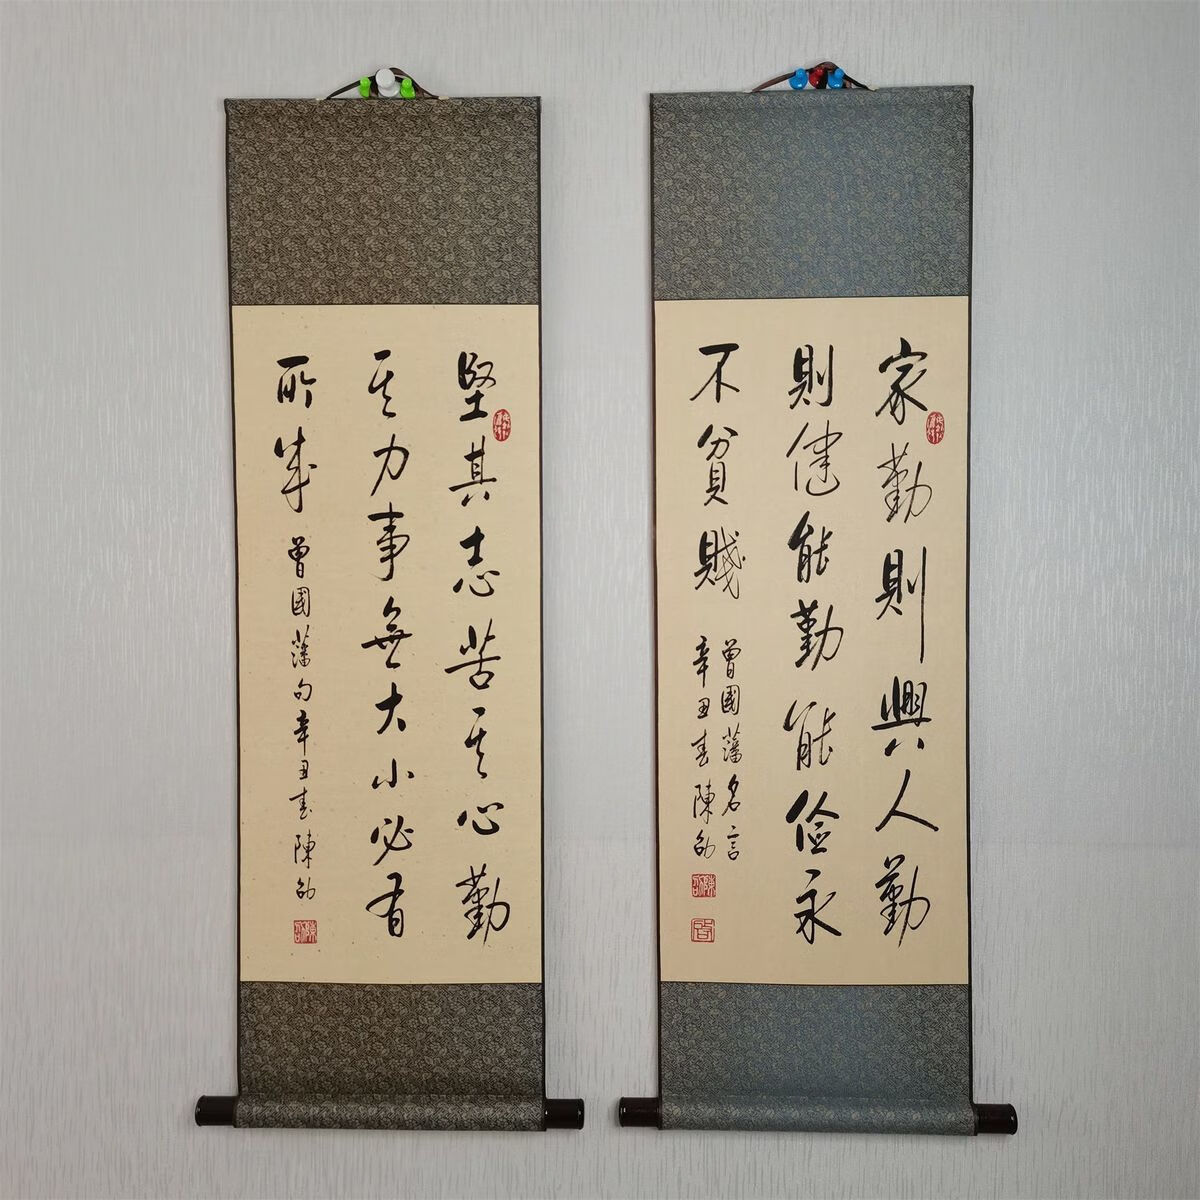 家勤則興人勤
則健能勤能俭永
不貧賤
曾國藩名言
辛丑春陳劭
堅其志苦其心勤
其力事無大小必有
所成
曾國藩句辛丑春陳劭